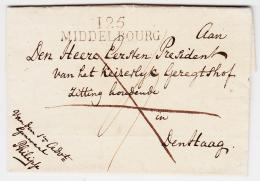 125
MIDDELBOURG
Aan
Den Heere Eersten President
van het Keizerlyk Geregtshof
Zitting houdende
in
Den Haag
Van den